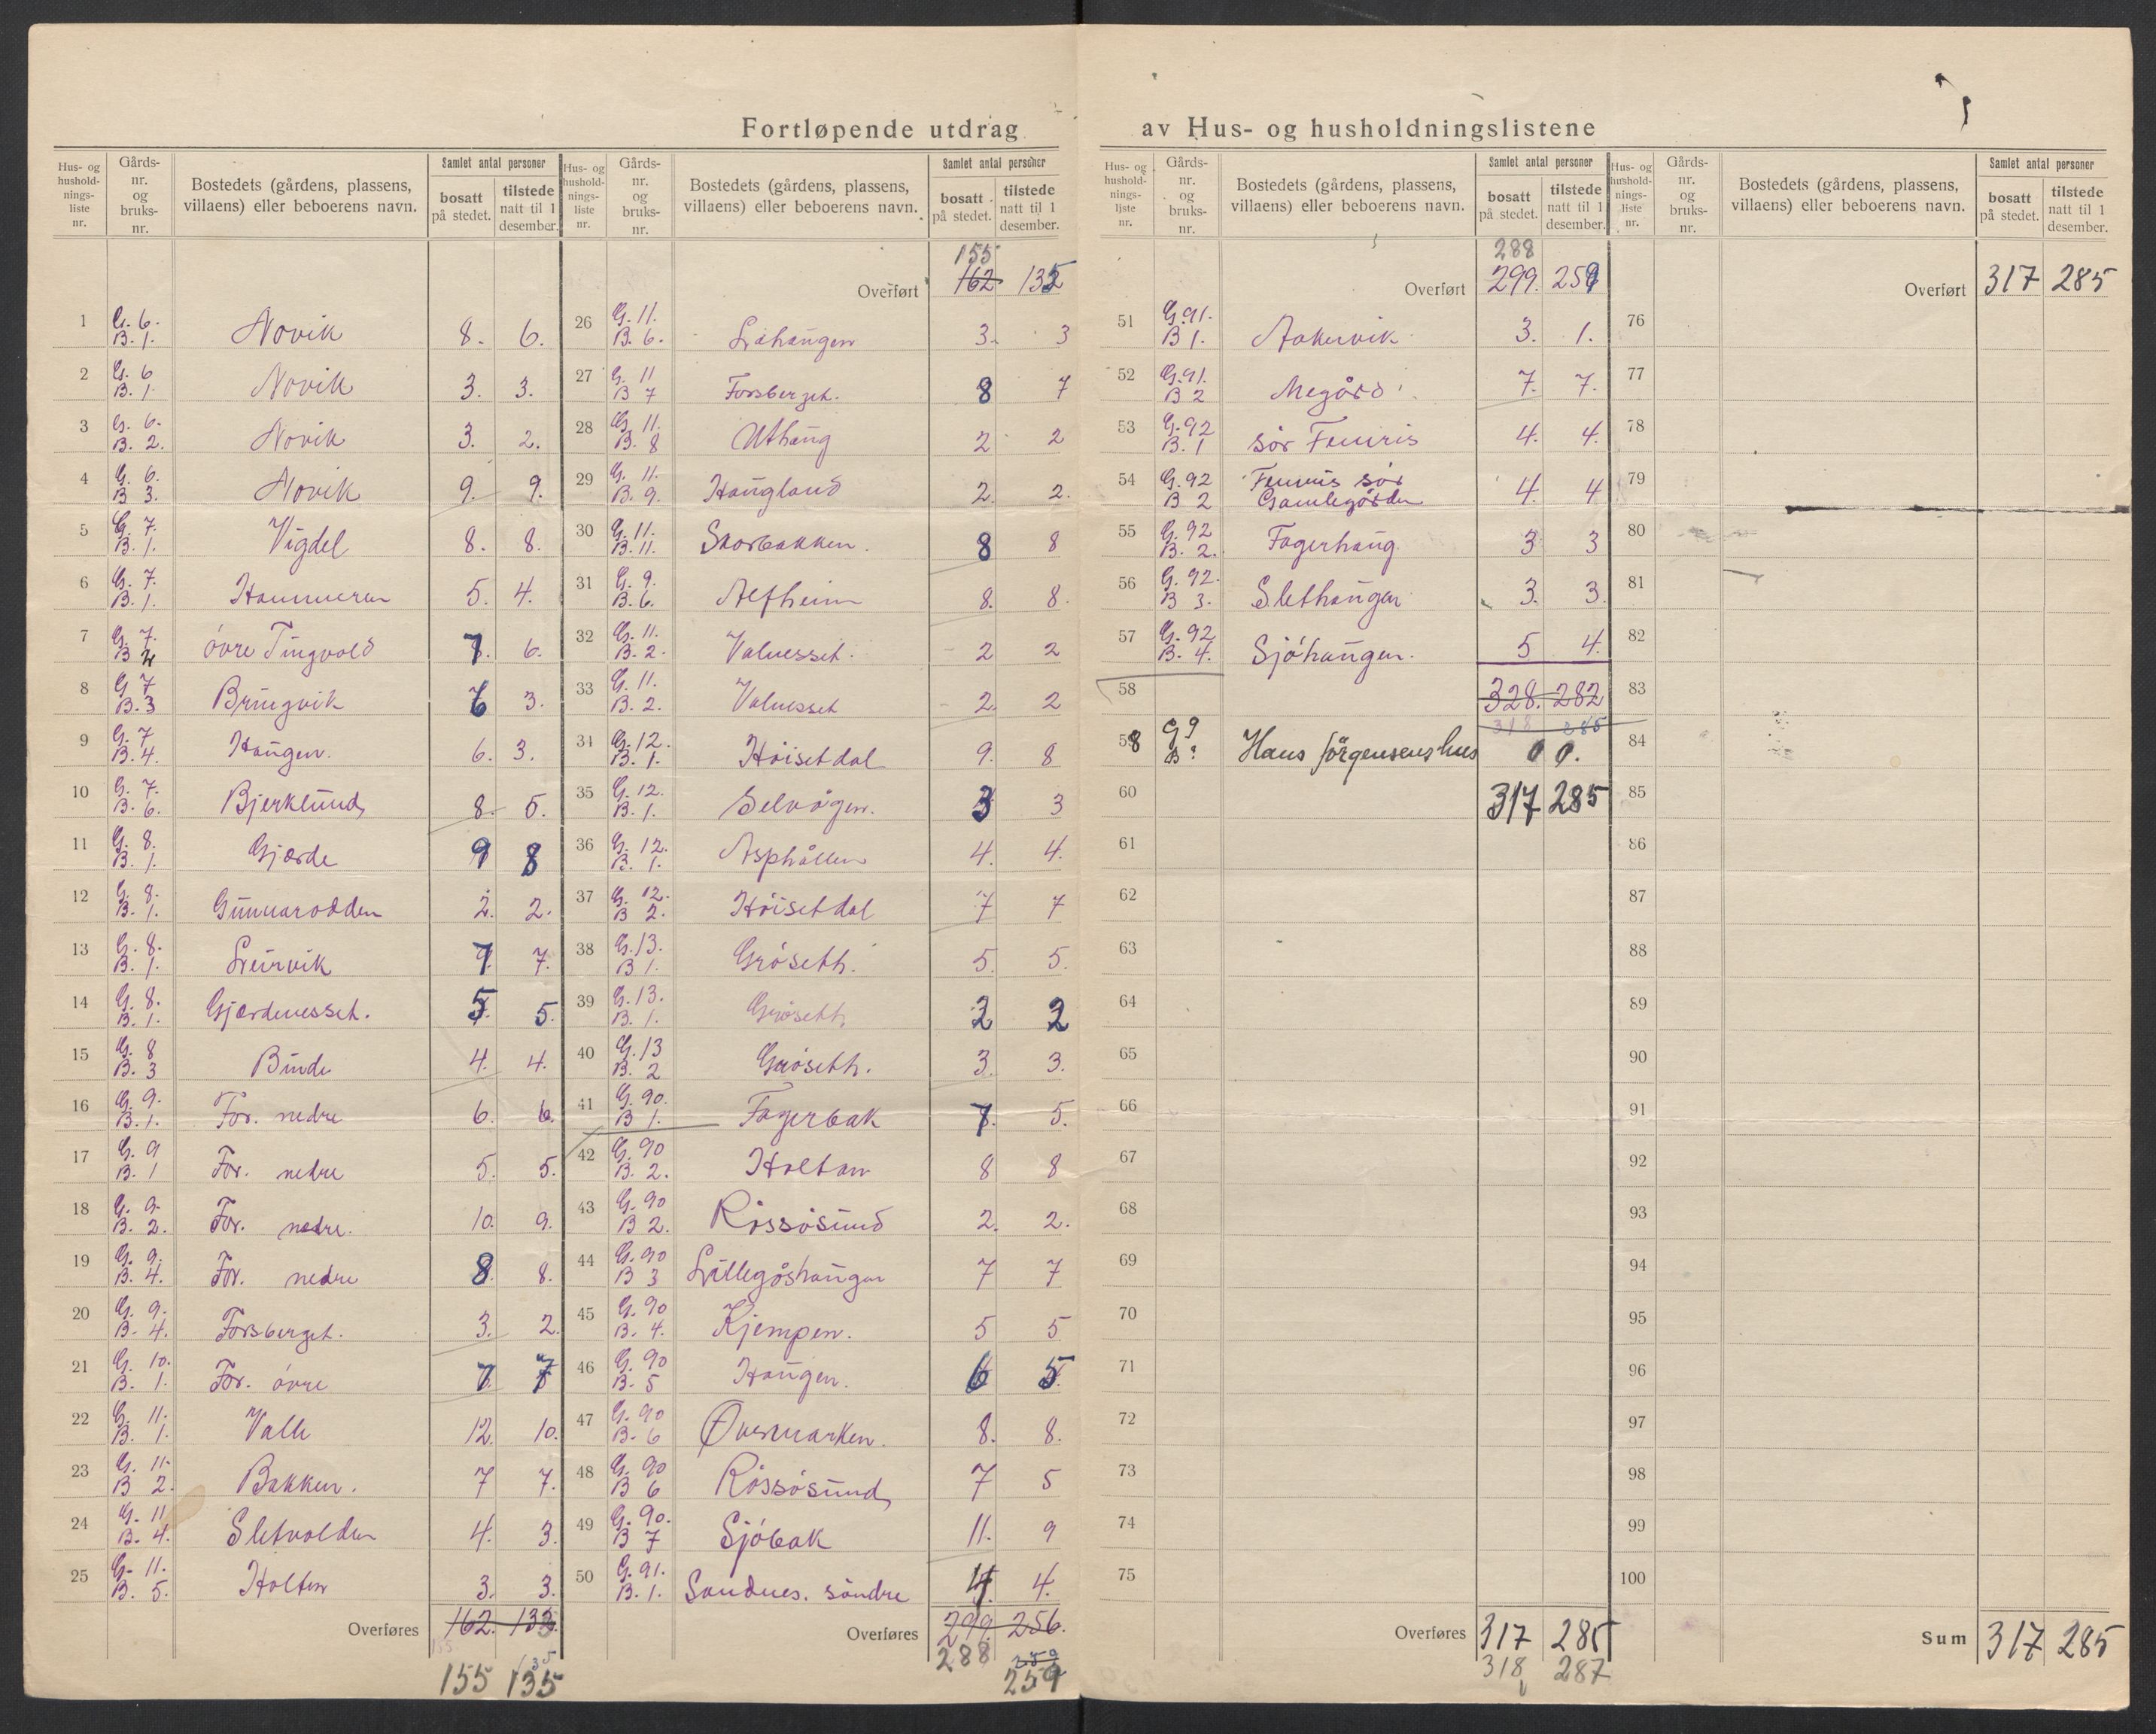 Fortløpende utdrag av Hus- og husholdningslistene
Hus- og hushold-nings-liste nr. | Gårds-nr. og bruks-nr. | Bostedets (gårdens, plassens, villaens) eller beboerens navn. | Samlet antal personer | bosatt på stedet. | tilstede natt til 1 desember.
1 G. 6. B. 1. Novik 8. 6.
2 G. 6 B. 1 Novik 3. 3.
3 G. 6. B. 2. Novik 3. 2.
4 G. 6. B 3. Novik 9. 9.
5 G. 7. B. 1. Vigdel 8. 8.
6 G. 7. B. 1. Hammeren 5. 4.
7 G. 7. B 2 övre Tingvold 7. 6.
8 G 7 B. 3 Bringvik 6 3.
9 G. 7 B. 4. Haugen. 6. 3.
10 G. 7. B. 6. Bjerklund 8. 5.
11 G. 8. B. 1. Gjærde 9 8
12 G. 8. B. 1. Gunnarodden 2. 2.
13 G. 8. B. 1. Leirvik 7. 7.
14 G. 8. B. 1. Gjærdenesset. 5. 5.
15 G. 8 B. 3 Binde 4. 4.
16 G. 9. B. 1. For. nedre 6. 6.
17 G. 9 B. 1 For. nedre 5. 5.
18 G. 9. B. 2. For. nedre. 10. 9.
19 G. 9. B. 4. For. nedre 8. 8.
20 G. 9. B. 4. Forsberget. 3. 2.
21 G. 10. B. 1. For. övre 7 7
22 G. 11. B. 1. Valle 12. 10.
23 G. 11. B 2. Bakken. 7 7.
24 G. 11 B. 4. Sletvolden 4. 3.
25 G. 11. B. 5. Holten 3. 3.
Overføres 162. 133.
155 135
Hus- og hushold-nings-liste nr. | Gårds-nr. og bruks-nr. | Bostedets (gårdens, plassens, villaens) eller beboerens navn. | Samlet antal personer | bosatt på stedet. | tilstede natt til 1 desember.
155
Overført 162 135
26 G. 11. B. 6. Liahaugen 3. 3
27 G. 11 B 7 Forsberget. 8 7
28 G. 11. B. 8 Uthaug 2 2
29 G. 11. B. 9. Haugland 2. 2.
30 G. 11. B. 11. Skorbakken. 8 8
31 G. 9. B. 6. Alfheim 8. 8.
32 G. 11. B. 2. Valnesset. 2 2
33 G. 11. B. 2. Valnesset 2. 2
34 G. 12. B. 1. Höisetdal 9. 8
35 G. 12. B. 1. Selvågen. 3 3
36 G. 12. B. 1. Asphållen 4. 4.
37 G. 12. B 2. Höisetdal 7 7
38 G. 13. B 1. Gröseth. 5. 5.
39 G. 13. B. 1. Gröseth 2 2
40 G. 13 B. 2 Gröseth. 3. 3.
41 G. 90. B 1. Fagerbak 7. 5.
42 G. 90 B. 2. Holtan 8 8
43 G. 90 B 2. Rössösund 2. 2.
44 G. 90 B 3 Lillegåshaugen 7 7
45 G. 90 B. 4. Kjempen. 5 5
46 G. 90 B. 5 Haugen. 6 5
47 G. 90 B. 6 Overmarken. 8. 8.
48 G. 90 B 6 Rössösund 7 5
49 G. 90. B 7 Sjöbak 11. 9
50 G. 91. B. 1. Sandnes. söndre 4. 4.
Overføres 299. 256.
288 259
259
Hus- og hushold-nings-liste nr. | Gårds-nr. og bruks-nr. | Bostedets (gårdens, plassens, villaens) eller beboerens navn. | Samlet antal personer | bosatt på stedet. | tilstede natt til 1 desember.
288
Overført 299. 259
51 G. 91. B 1. Aakervik 3. 1.
52 G. 91. B 2 Megård 7. 7.
53 G. 92 B. 1 sör Femris 4. 4.
54 G. 92 B 2 Femris sör Gamlegården 4. 4
55 G. 92 B. 2. Fagerhaug 3 3
56 G. 92. B 3. Slethaugen 3. 3.
57 G. 92 B. 4. Sjöhaugen. 5 4.
58 328. 282
318 285
59 8 G 9 B ? Hans Jörgensens hus 0 0.
60 317 285
61
62
63
64
65
66
67
68
69
70
71
72
73
74
75
Overføres 317 285
318 287
Hus- og hushold-nings-liste nr. | Gårds-nr. og bruks-nr. | Bostedets (gårdens, plassens, villaens) eller beboerens navn. | Samlet antal personer | bosatt på stedet. | tilstede natt til 1 desember.
Overført 317 285
76
77
78
79
80
81
82
83
84
85
86
87
88
89
90
91
92
93
94
95
96
97
98
99
100
Sum 317 285